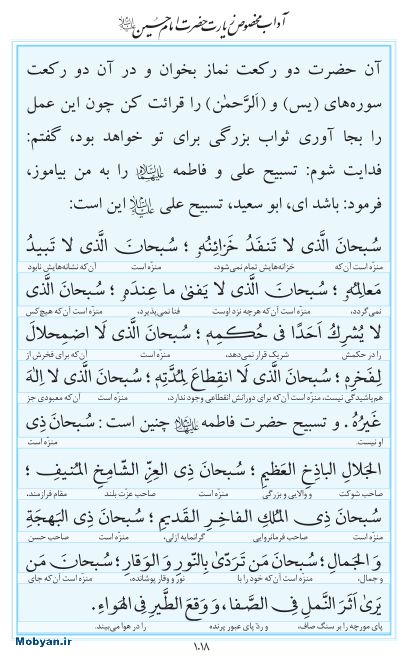 آداب مخصوص زیارت حضرت امام حسین علیه‌السلام
آن حضرت دو رکعت نماز بخوان و در آن دو رکعت
سوره‌های (یس) و (اَلرَّحمٰن) را قرائت کن چون این عمل
را بجا آوری ثواب بزرگی برای تو خواهد بود، گفتم:
فدایت شوم: تسبیح علی و فاطمه علیهماالسلام را به من بیاموز،
فرمود: باشد ای، ابو سعید، تسبیح علی علیه‌السلام این است:
سُبحانَ الَّذی لا تَنفَدُ خَزائِنُه ؛ سُبحانَ الَّذی لا تَبیدُ
منزّه است آن‌که خزانه‌هایش تمام نمی‌شود، منزّه است آن‌که نشانه‌هایش نابود
مَعالِمُه ؛ سُبحانَ الَّذی لا یَفنیٰ ما عِندَه ؛ سُبحانَ الَّذی
نمی‌گردد، منزّه است آن‌که هرچه نزد اوست فنا نمی‌پذیرد، منزّه است آن‌که هیچ‌کس
لا یُشرِكُ اَحَدًا فی حُکمِه ؛ سُبحانَ الَّذی لَا اضمِحلالَ
را در حکمش شریک قرار نمی‌دهد، منزّه است آن‌که برای فخرش از
لِفَخرِه ؛ سُبحانَ الَّذی لَا انقِطاعَ لِمُدَّتِه ؛ سُبحانَ الَّذی لا اِلٰهَ
هم‌پاشیدگی نیست، منزّه است آن‌که برای دورانش انقطاعی وجود ندارد، منزّه است آن‌که معبودی جز
غَیرُهُ . و تسبیح حضرت فاطمه علیهاالسلام چنین است : سُبحانَ ذِی
او نیست. منزّه است
الجَلالِ الباذِخِ العَظیمِ ؛ سُبحانَ ذِی العِزِّ الشّامِخِ المُنیفِ ؛
صاحب شوکت و والایی و بزرگی منزّه است صاحب عزت بلند مقام فرازمند،
سُبحانَ ذِی المُلكِ الفاخِرِ القَدیمِ ؛ سُبحانَ ذِی البَهجَةِ
منزّه است صاحب فرمانروایی گرانمایه ازلی، منزّه است صاحب حسن
وَ الجَمالِ ؛ سُبحانَ مَن تَرَدّیٰ بِالنّورِ وَ الوَقارِ ؛ سُبحانَ مَن
و جمال، منزّه است آن‌که خود را با نور و وقار پوشانده، منزّه است آن‌که جای
یَریٰ اَثَرَ النَّملِ فِی الصَّفا، وَ وَقعَ الطَّیرِ فِی الهَواءِ.
پای مورچه را بر سنگ صاف، و ردّ پای عبور پرنده را در هوا می‌بیند.
۱۰۱۸
Mobyan.ir